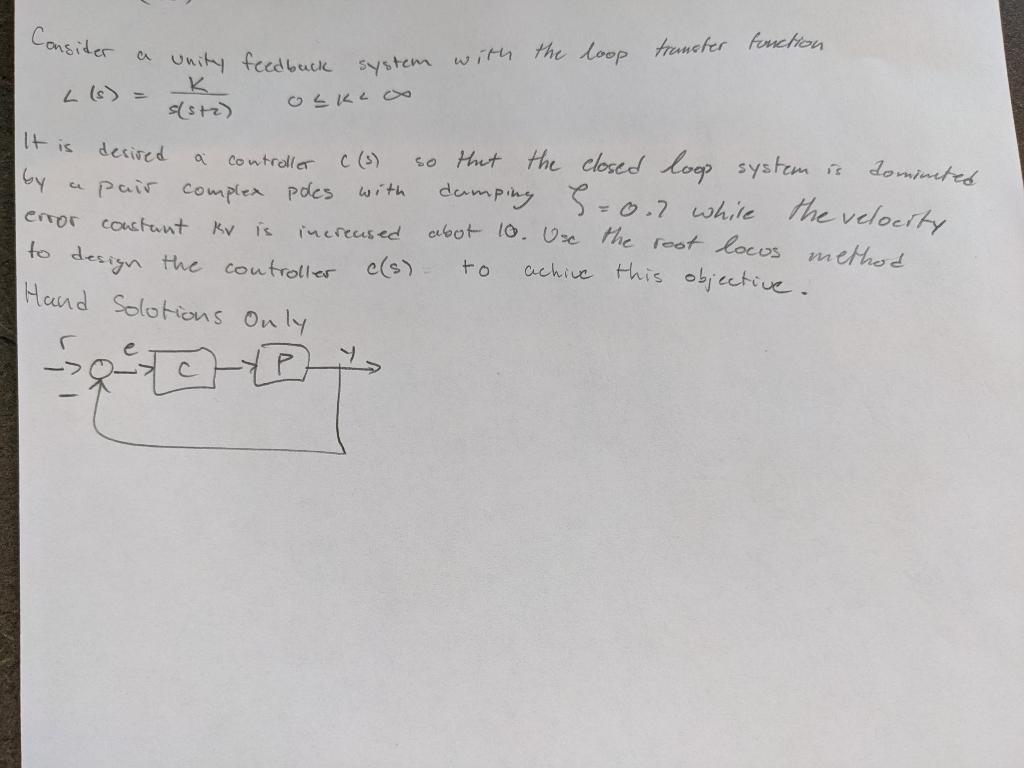 Consider a unity feedback system with the loop transfer function
L(s) = K / s(s+2)   0 ≤ K < ∞
It is desired a controller C(s) so that the closed loop system is dominated
by a pair complex poles with damping ζ = 0.7 while the velocity
error constant Kv is increased abot 10. Use the root locus method
to design the controller C(s) to achive this objective.
Hand Solutions Only
r e C P y
−